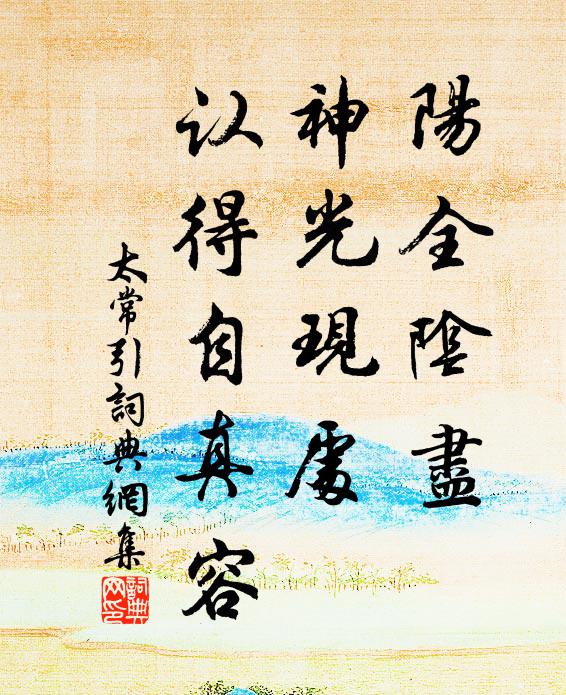 陽全陰盡
神光現處
认得自真容
太常引詞典網集
詞典网印